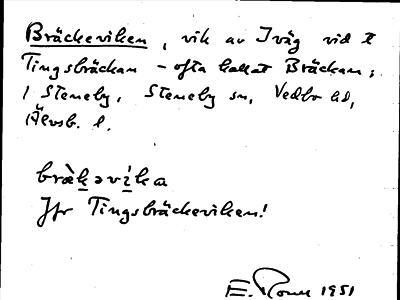 Bräckeviken, vik av Iväg vid t
Tingsbräckan – ofta kallat Bräckan;
i Steneby, Steneby sn, Vedbo hd,
Älvsb. l.
bràkəvika
Jfr Tingsbräckeviken!
E. 1951